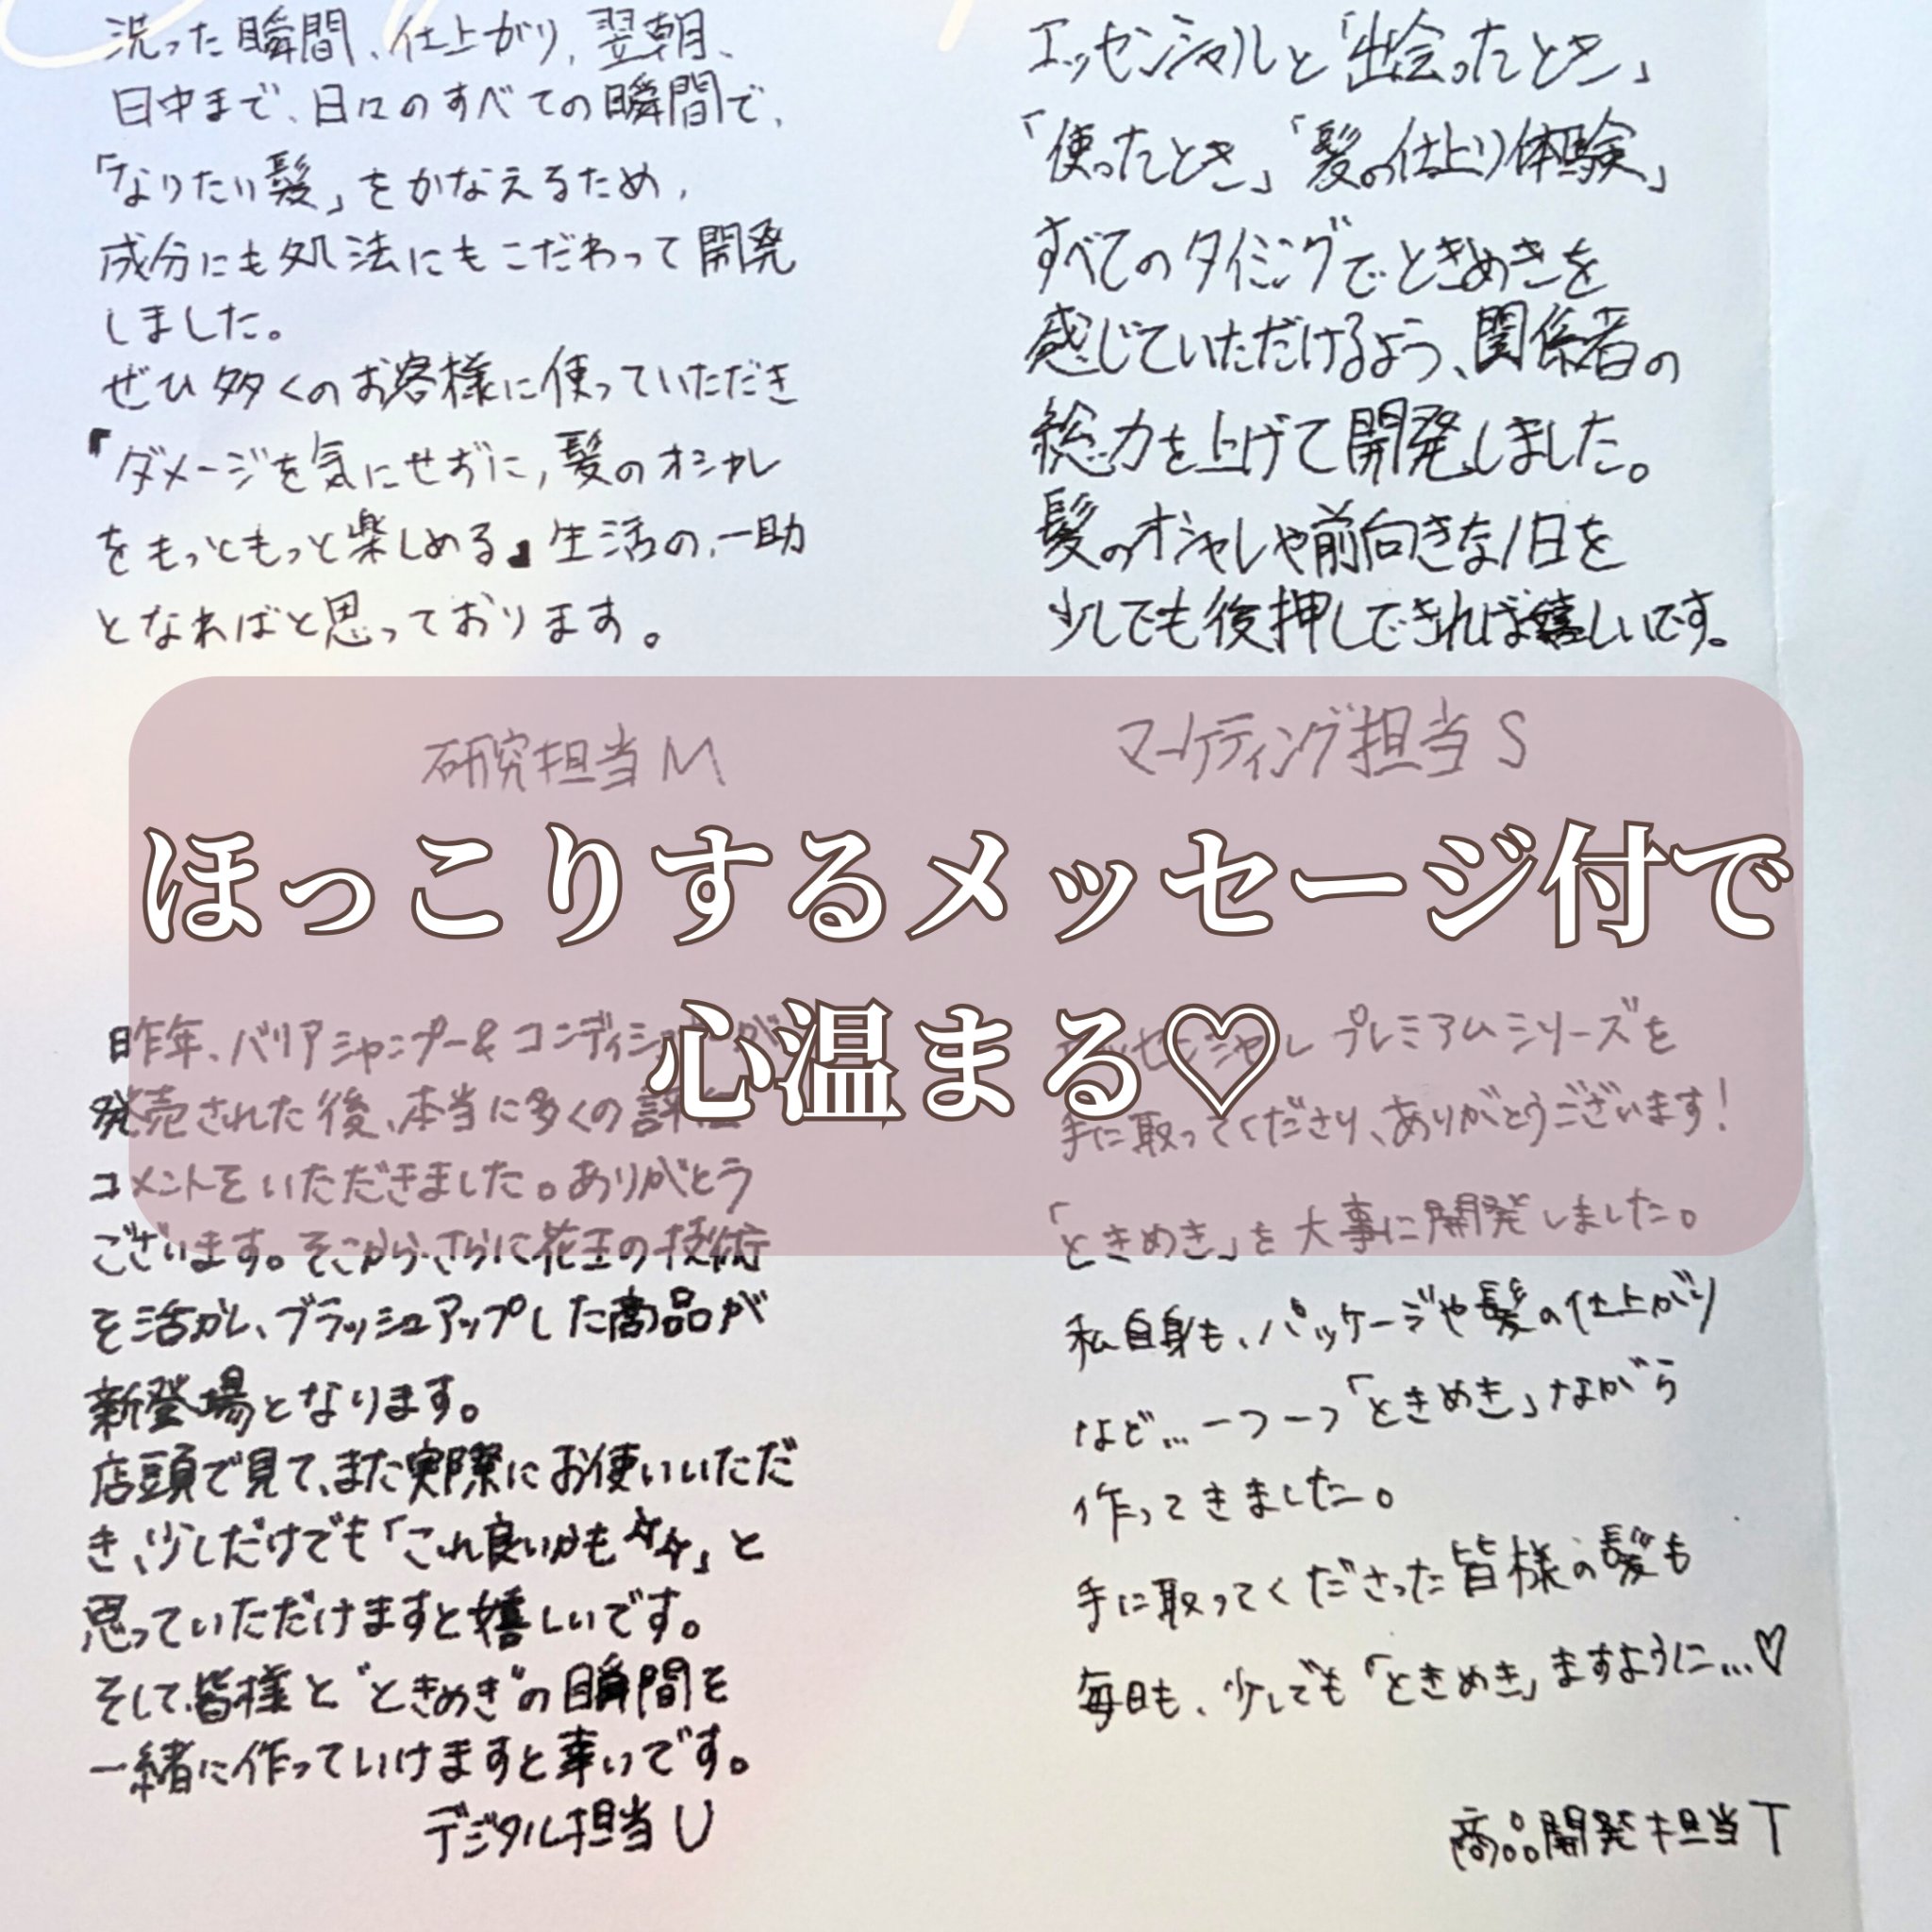 洗った瞬間、仕上がり、翌朝、
日中まで、日々のすべての瞬間で、
「なりたい髪」をかなえるため、
成分にも処法にもこだわって開発
しました。
ぜひ多くのお客様に使っていただき
『ダメージを気にせずに、髪のオシャレ
をもっともっと楽しめる』生活の、一助
となればと思っております。
研究担当M
エッセンシャルと「出会ったとき」
「使ったとき」「髪の仕上り体験」
すべてのタイミングでときめきを
感じていただけるよう、関係者の
総力を上げて開発しました。
髪のオシャレや前向きな1日を
少しでも後押しできれば嬉しいです。
マーケティング担当S
ほっこりするメッセージ付で
心温まる♡
昨年、バリアシャンプー&コンディショナーが
発売された後、本当に多くの
コメントをいただきました。ありがとう
ございます。そこからさらに花王の技術
を活かし、ブラッシュアップした商品が
新登場となります。
店頭で見て、また実際にお使いいただ
き、少しだけでも「これ良いかも☆☆」と
思っていただけますと嬉しいです。
そして、皆様と"ときめき"の瞬間を
一緒に作っていけますと幸いです。
デジタル担当U
エッセンシャル プレミアムシリーズを
手に取ってくださり、ありがとうございます!
「ときめき」を大事に開発しました。
私自身も、パッケージや髪の仕上がり
など…一つ一つ「ときめき」ながら
作ってきました。
手に取ってくださった皆様の髪も
毎日も、少しでも「ときめき」ますように…♡
商品開発担当T